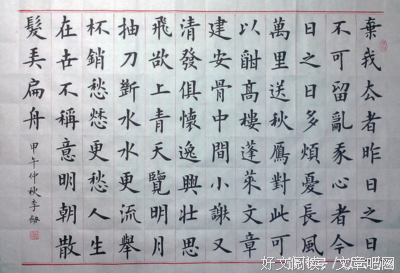 棄我去者昨日之日
不可留亂我心者今
日之日多煩憂長風
萬里送秋鴈對此可
以酣高樓蓬萊文章
建安骨中間小謝又
清發俱懷逸興壯思
飛欲上青天覽明月
抽刀斷水水更流舉
杯銷愁愁更愁人生
在世不稱意明朝散
髮弄扁舟
甲午仲秋李
文章吧网